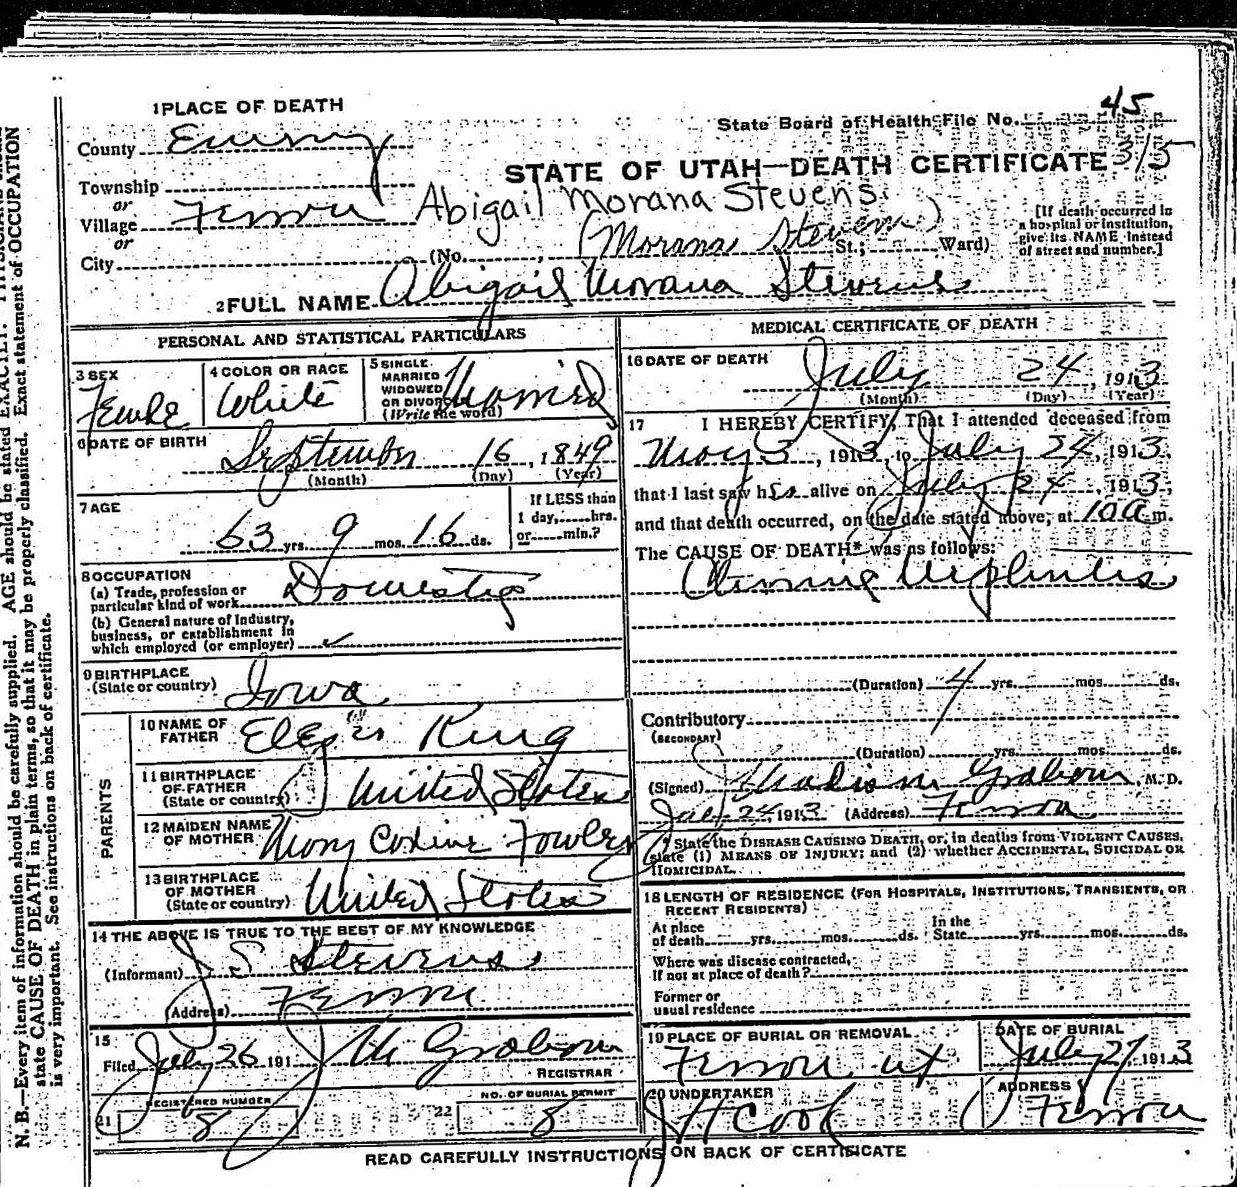 1 PLACE OF DEATH
45
State Board of Health File No.
County Emery
315
STATE OF UTAH—DEATH CERTIFICATE
Township
or
Village Ferron
Abigail Morana Stevens.
(Morana Stevens)
or
City (No. , St.; Ward)
[If death occurred in
a hospital or institution,
give its NAME instead
of street and number.]
2 FULL NAME Abigail Morana Stevens
PERSONAL AND STATISTICAL PARTICULARS
3 SEX
Female
4 COLOR OR RACE
White
5 SINGLE
MARRIED
WIDOWED
OR DIVORCED
(Write the word)
Married
6 DATE OF BIRTH
September 16, 1849
(Month) (Day) (Year)
7 AGE
63 yrs. 9 mos. 16 ds.
If LESS than
1 day, hrs.
or min.?
8 OCCUPATION
(a) Trade, profession or
particular kind of work Domestic
(b) General nature of industry,
business, or establishment in
which employed (or employer)
9 BIRTHPLACE
(State or country) Iowa
PARENTS
10 NAME OF
FATHER
King
11 BIRTHPLACE
OF FATHER
(State or country) United States
12 MAIDEN NAME
OF MOTHER
Mary Fowler
13 BIRTHPLACE
OF MOTHER
(State or country) United States
14 THE ABOVE IS TRUE TO THE BEST OF MY KNOWLEDGE
(Informant) J S Stevens
(Address) Ferron
15
Filed July 26 191 J M Graham
REGISTRAR
21
REGISTERED NUMBER
8
22
NO. OF BURIAL PERMIT
8
MEDICAL CERTIFICATE OF DEATH
16 DATE OF DEATH
July 24, 1913
(Month) (Day) (Year)
17 I HEREBY CERTIFY, That I attended deceased from
May 3, 1913 to July 24, 1913,
that I last saw her alive on July 24, 1913,
and that death occurred, on the date stated above, at 10 a m.
The CAUSE OF DEATH* was as follows:
(Duration) 4 yrs. mos. ds.
Contributory
(SECONDARY)
(Duration) yrs. mos. ds.
(Signed) J Madison Graham M. D.
July 24 1913 (Address) Ferron
* State the DISEASE CAUSING DEATH, or, in deaths from VIOLENT CAUSES,
state (1) MEANS OF INJURY; and (2) whether ACCIDENTAL, SUICIDAL OR
HOMICIDAL.
18 LENGTH OF RESIDENCE (FOR HOSPITALS, INSTITUTIONS, TRANSIENTS, OR
RECENT RESIDENTS)
At place
of death yrs. mos. ds.
In the
State yrs. mos. ds.
Where was disease contracted,
if not at place of death?
Former or
usual residence
19 PLACE OF BURIAL OR REMOVAL
Ferron ut
DATE OF BURIAL
July 27 1913
20 UNDERTAKER
J H Cook
ADDRESS
Ferron
READ CAREFULLY INSTRUCTIONS ON BACK OF CERTIFICATE
N. B.—Every item of information should be carefully supplied. AGE should be stated EXACTLY.
state CAUSE OF DEATH in plain terms, so that it may be properly classified. Exact statement of OCCUPATION
is very important. See instructions on back of certificate.